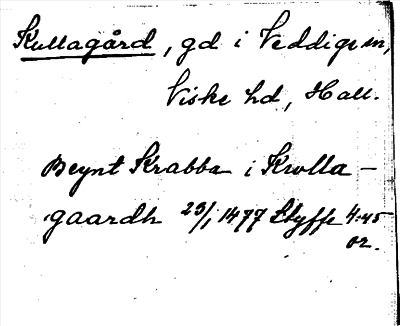 Kullagård, gd i Veddige sn,
Viske hd, Hall.
Beynt Krabba i Krolla-
gaardh 23/1 1477 Styffe 4.45
or.